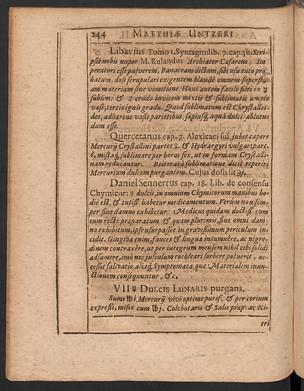 244 MATTHIÆ UNTZERI
Libavius Tomo 1. Syntagm. lib. 7. cap. 30. Scri-
psit mihi nuper M. Rulandus Archiater Cæsareus Im-
peratoris esse pulverem, Panacæam dictum, sibi usu toto pro-
batum, dosi scrupulari exigentem blandè omnem superflu-
am materiam sine vomitione. Hunc autem
sublim: & crudo invicem mixtis & sublimatis
vase, tertio ignis gradu. Quod sublimatum est Chrystalli
des, adhærens vasis parietibus. sapius, aquâ dulci abluen-
dum esse.
Quercetanus cap. 7. Alexicaci sui jubet capere
Mercurij Crystallini partes 3. & Hydrargyri vulgaris part.
mista, sublimare per horas sex, ut in formam Crystalli-
nam reducantur. sublimatione dicit reperiri
Mercurium dulcem purgantem. Cujus dosis sit
Daniel Sennertus cap. 18. Lib. de consensu
Chymicor: dulcis, in omnium Chymicorum manibus ho-
die est, & tutis habetur medicamentum. Verùm non sem-
per sine damno exhibetur. Medicus quidam doctiss. cum
eum rectè præparatum & quam plurimis, sine omni dam-
no exhibitum, ipse usurpasset in gravissimum periculum in-
cidit. Gingiva enim, fauces & lingua intumuêre, ac nigre-
dinem contraxêre, ut per integrum mensem nihil cibi solidi
assumere, imò nec jusculum cochleari sorbere potuerit, ac-
cessit salivatio, aliaq; Symptomata, quæ Materialem inun-
ctionem consequuntur, &c.
VII DULCIS LUNARIS purgans,
Sume Mercurij vivi optimè purif. & per corium
expressi, misce cum Colchotaris & Salis præp: ac
tri